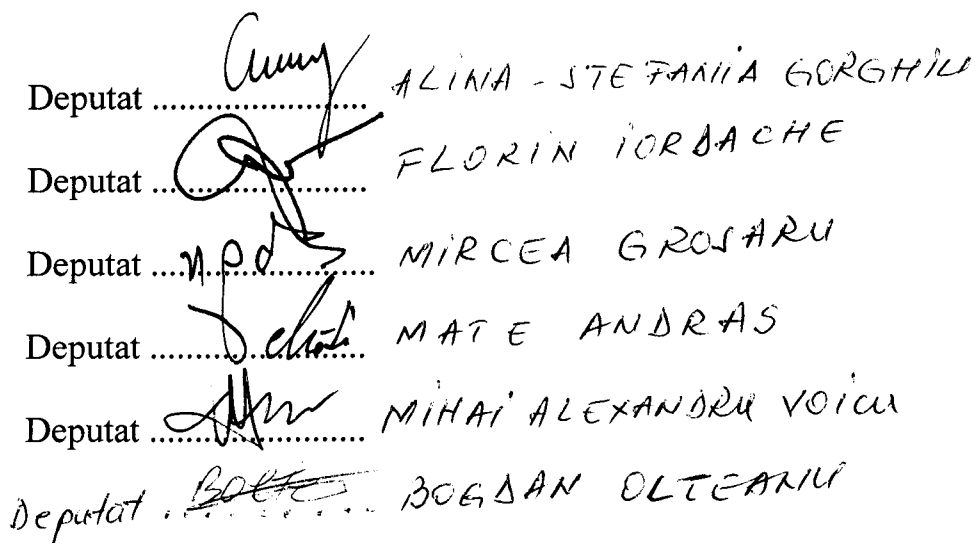 Deputat ........................ ALINA - STEFANIA GORGHIU
Deputat ........................ FLORIN IORDACHE
Deputat ........................ MIRCEA GROSARU
Deputat ........................ MATE ANDRAS
Deputat ........................ MIHAI ALEXANDRU VOICU
Deputat ............ BOGDAN OLTEANU